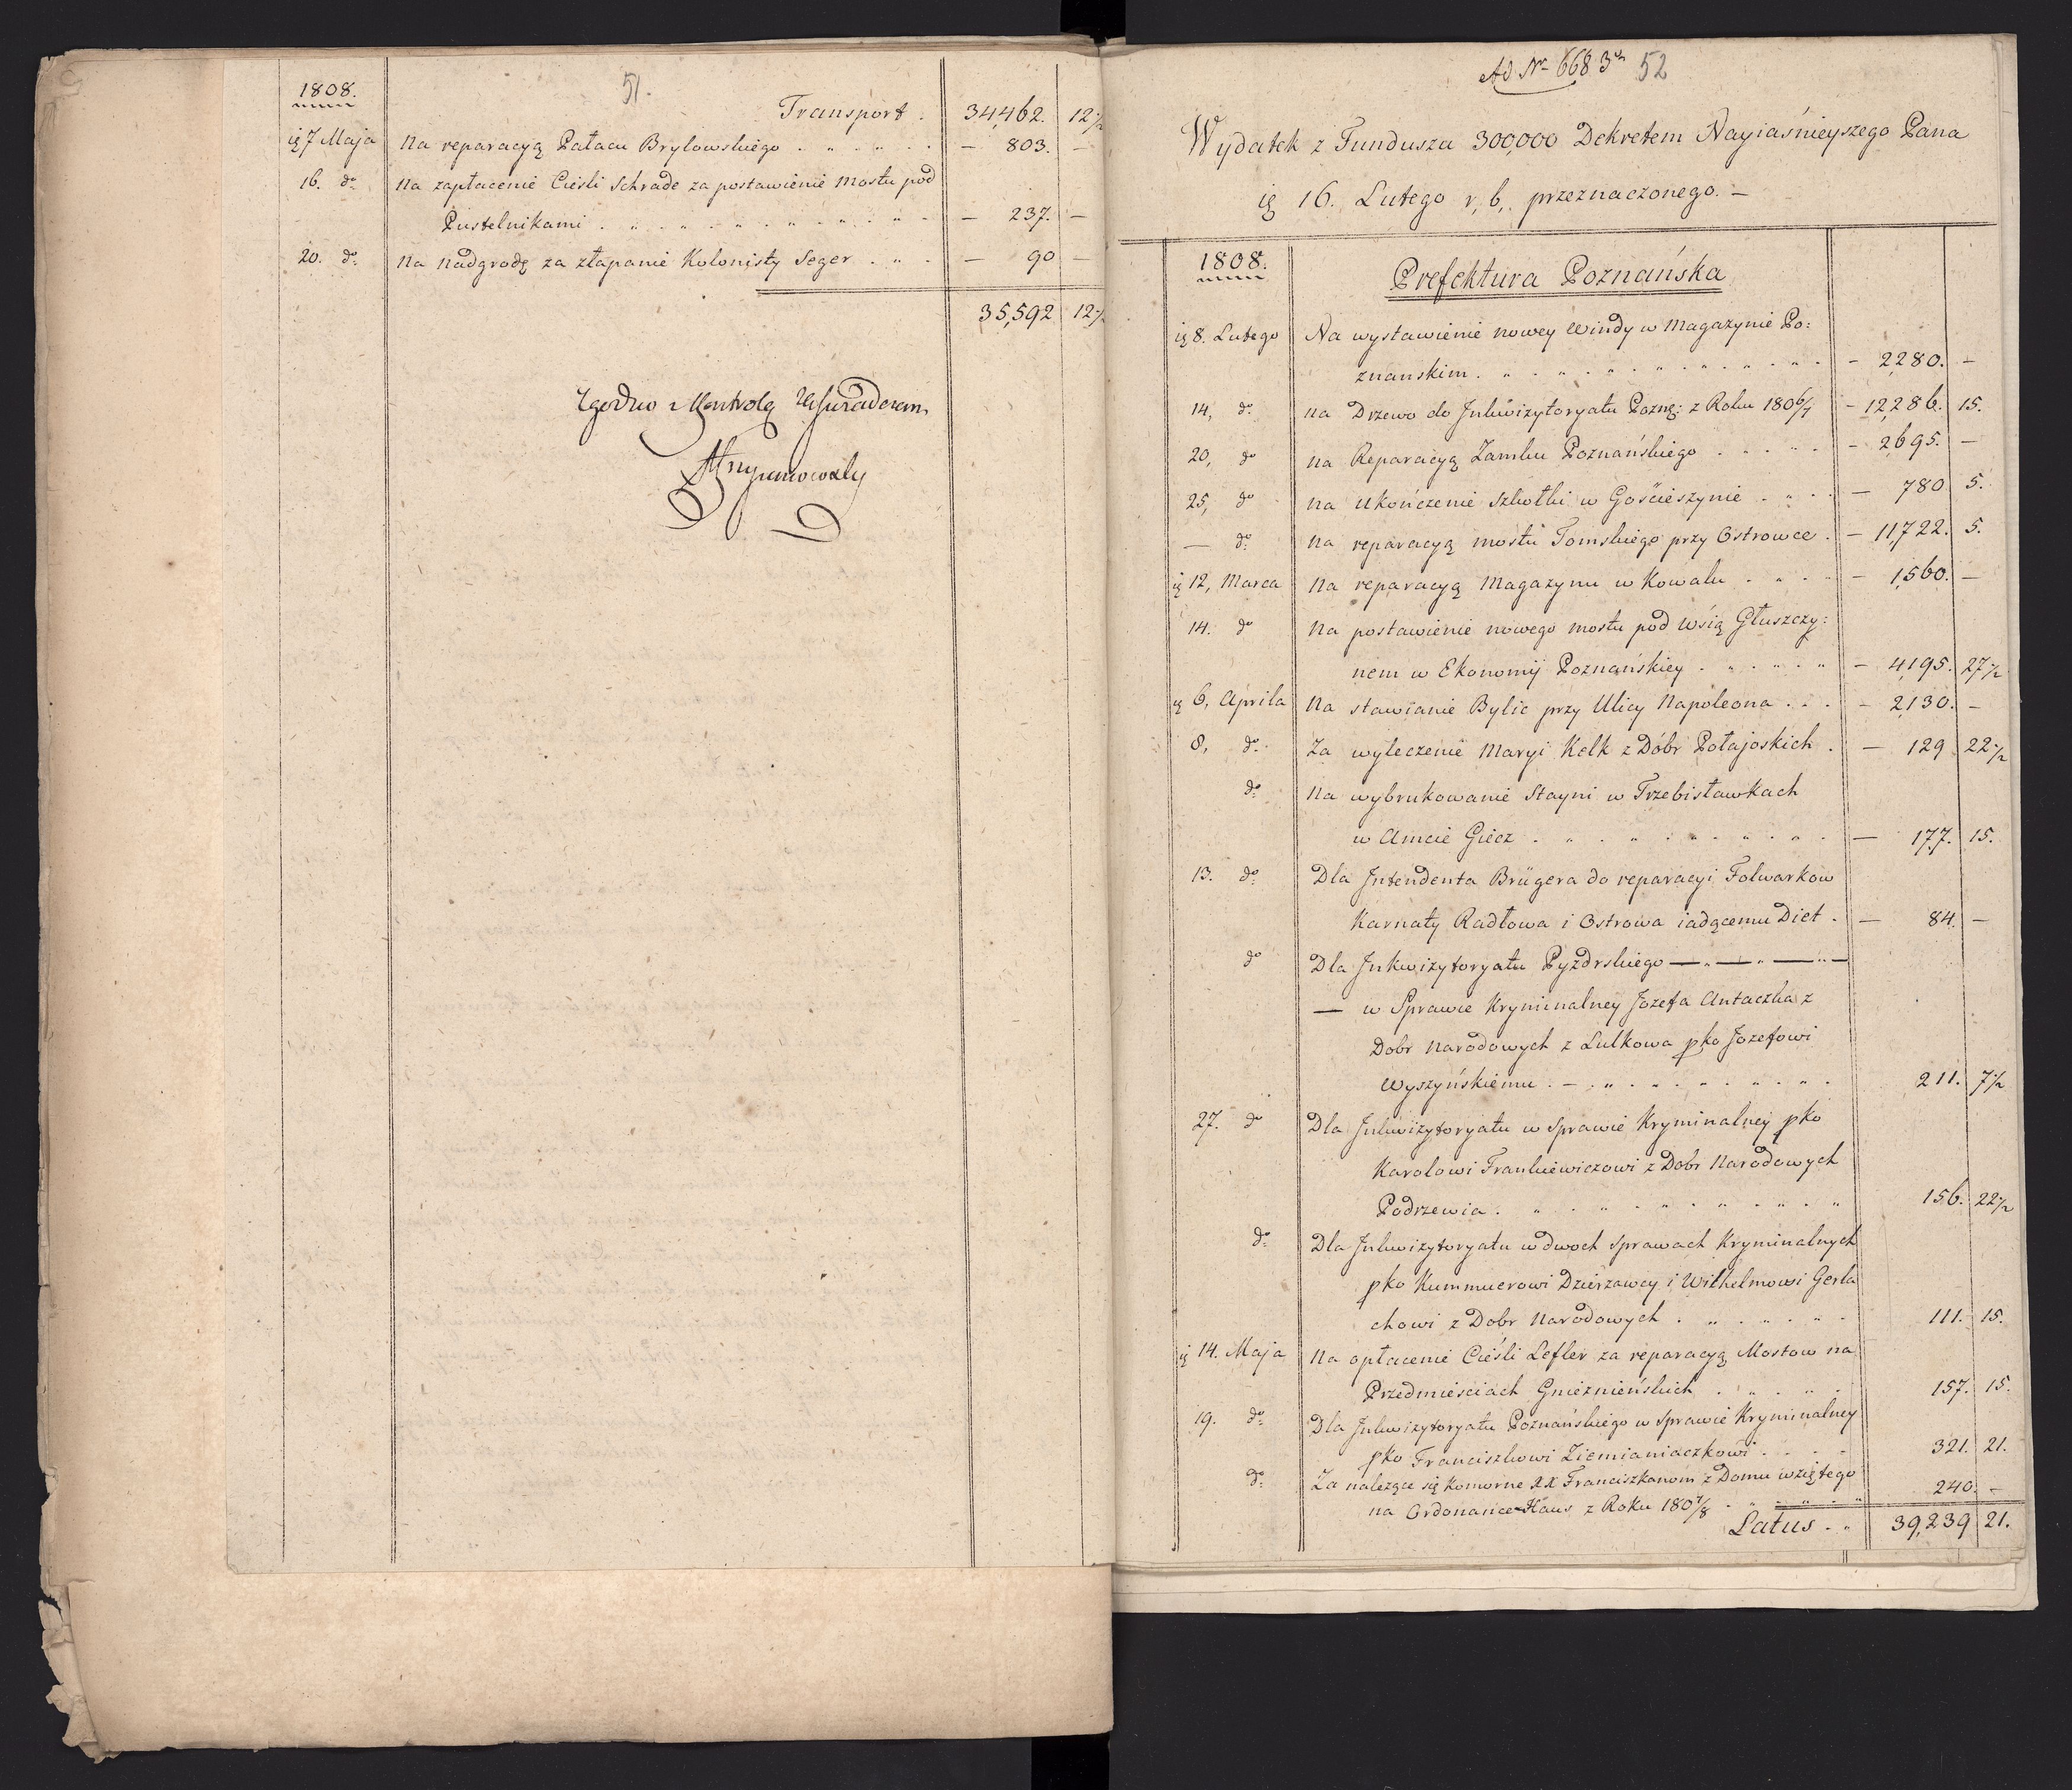 51.
1808.
Transport . 34,462. 12 1/2
ię 7 Maja Na reparacyą Pałacu Brylowskiego . . „ . „ . - 803. -
16. do Na zapłacenie Cieśli Schrade za postawienie Mostu pod
Pustelnikami . „ . „ . „ . „ . „ . - 237. -
20. do Na nadgrodę za złapanie Kolonisty Seger . „ . - 90 -
35,592 12 1/2
Zgodno z Kontrolą
Ad Nr 668 52
Wydatek z Fundusza 300,000 Dekretem Nayiaśnieyszego Pana
ię 16. Lutego r, b, przeznaczonego. -
1808.
Prefektura Poznańska
ię 8. Lutego Na wystawienie nowey Windy w Magazynie Po:
znanskim . „ . „ . „ . „ . „ . - 2280. -
14, do na Drzewo do Inkwizytoryatu Pozng: z Roku 180 6/7 - 12,286. 15.
20, do na Reparacyą Zamku Poznańskiego . . . . . - 2695. -
25, do na ukończenie Szkołki w Gościeszynie . „ . - 780 5.
— do na reparacyą mostu Tomskiego przy Ostrowce . - 11,722. 5.
ię 12, Marca Na reparacyą Magazynu w Kowalu . „ . „ - 1,560. -
14. do Na postawienie nowego mostu pod Wsią Głuszczy:
nem w Ekonomij Poznańskiey . „ . „ . „ - 4,195. 27 1/2
ię 6, Aprila Na stawianie Bylic przy Ulicy Napoleona . . . - 2,130. -
8, do Za wyleczenie Maryi Kelk z Dóbr Połajoskich . - 129 22 1/2
do Na wybrukowanie Stayni w Trzebisławkach
w Amcie Giecz . „ . „ . „ . „ . „ . - 177. 15.
13. do Dla Intendenta Brügera do reparacyi Folwarkow
Karnaty Radłowa i Ostrowa iadącemu Diet . - 84. -
do Dla Inkwizytoryatu Pyzdrskiego — „ — „ — „ —
— w Sprawie Kryminalney Jozefa Antaczka z
Dobr Narodowych z Lulkowa pko Jozefowi
Wyszyńskiemu . - . „ . „ . „ . „ . „ . 211. 7 1/2
27. do Dla Inkwizytoryatu w Sprawie Kryminalney pko
Karolowi Frankiewiczowi z Dobr Narodowych
Podrzewia . „ . „ . „ . „ . „ . „ 156. 22 1/2
do Dla Inkwizytoryatu w dwoch Sprawach Kryminalnych
pko Kummuerowi Dzierzawcy i Wilhelmowi Gerla
chowi z Dobr Narodowych . „ . „ . „ . 111. 15.
ię 14. Maja Na opłacenie Cieśli Lefler za reparacyą Mostow na
Przedmieściach Gnieźnieńskich . „ . „ . 157. 15.
19. do Dla Inkwizytoryatu Poznańskiego w Sprawie Kryminalney
pko Franciszkowi Ziemianiaczkowi . . . . 321. 21.
do Za nalezące się Komorne XX Franciszkanom z Domu wziętego
na Ordonance-Haus z Roku 180 7/8 . „ . „ . „ 240. -
Latus . „ 39,239 21.